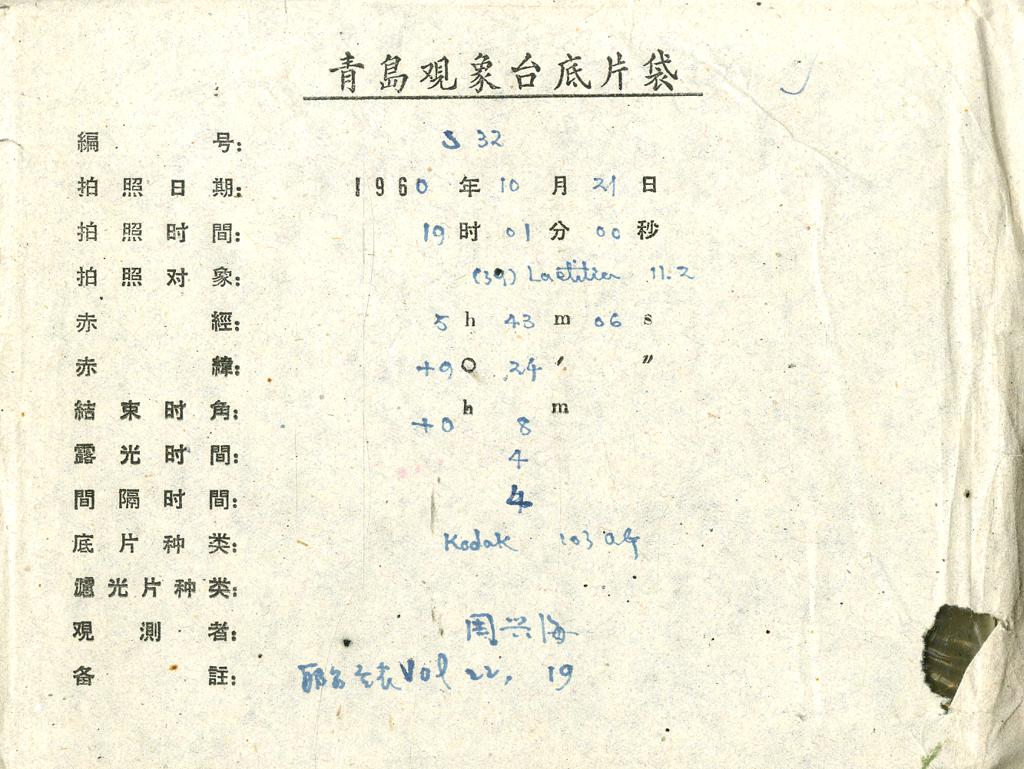 青島观象台底片袋
編 号: S 32
拍照日期: 1960 年 10 月 21 日
拍照时間: 19 时 01 分 00 秒
拍照对象: (39) Laetitia 11.2
赤 經: 5 h 43 m 06 s
赤 緯: +9 ○ 24 ′ ″
結束时角: +0 h 8 m
露光时間: 4
間隔时間: 4
底片种类: Kodak 103 aG
濾光片种类:
观測者: 周兴海
备 註: Vol 22, 19